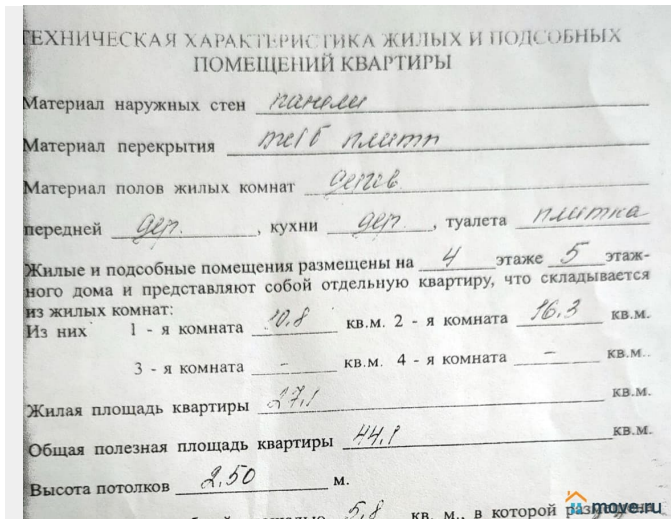 ТЕХНИЧЕСКАЯ ХАРАКТЕРИСТИКА ЖИЛЫХ И ПОДСОБНЫХ
ПОМЕЩЕНИЙ КВАРТИРЫ
Материал наружных стен панели
Материал перекрытия ж/б плитп
Материал полов жилых комнат дерев
передней дер. , кухни дер. , туалета плитка
Жилые и подсобные помещения размещены на 4 этаже 5 этаж-
ного дома и представляют собой отдельную квартиру, что складывается
из жилых комнат:
Из них 1 - я комната 10.8 кв.м. 2 - я комната 16.3 кв.м.
3 - я комната - кв.м. 4 - я комната - кв.м..
Жилая площадь квартиры 27,1 кв.м.
Общая полезная площадь квартиры 44,1 кв.м.
Высота потолков 2.50 м.
5,8 кв. м., в которой
move.ru